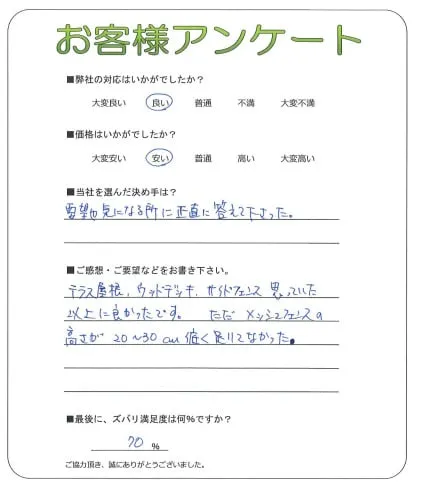 お客様アンケート
■弊社の対応はいかがでしたか?
大変良い 良い 普通 不満 大変不満
■価格はいかがでしたか?
大変安い 安い 普通 高い 大変高い
■当社を選んだ決め手は?
要望や気になる所に正直に答えて下さった。
■ご感想・ご要望などをお書き下さい。
テラス屋根、ウッドデッキ、サイドフェンス 思っていた
以上に良かったです。 ただ メッシュフェンスの
高さが 20~30cm 低く足りてなかった。
■最後に、ズバリ満足度は何%ですか?
70 %
ご協力頂き、誠にありがとうございました。